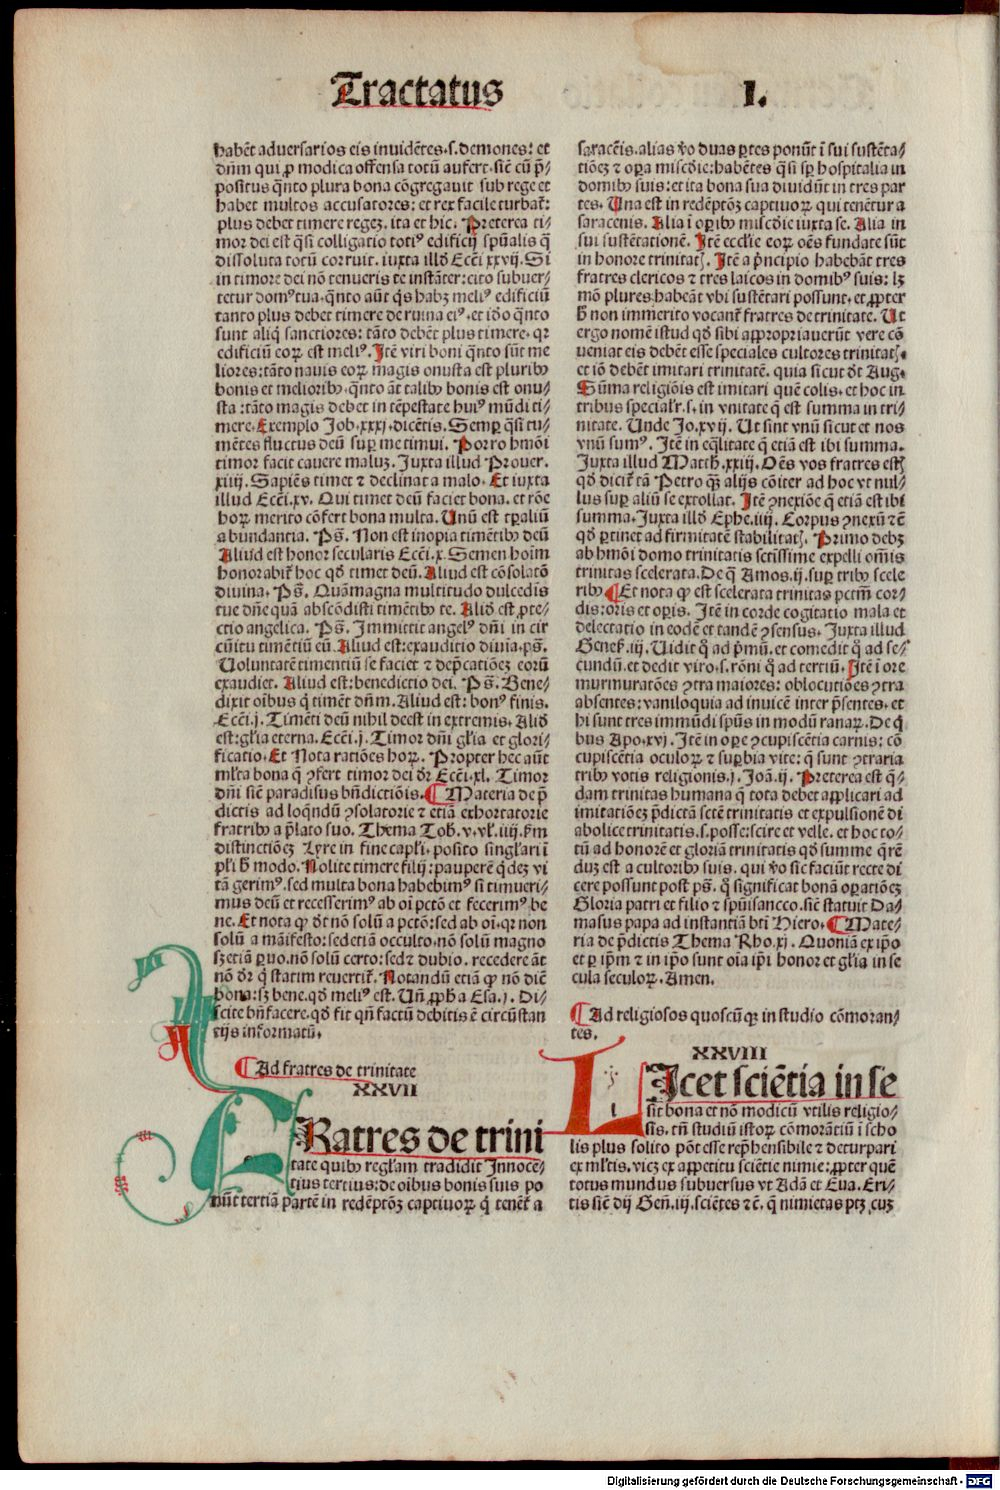 Tractatus I.
habēt aduersarios eis inuidētes.s.demones: et
dn̄m qui ꝓ modica offensa totū aufert.sic̄ cū p̄/
positus q̄nto plura bona cōgregauit sub rege et
habet multos accusatores: et rex facile turbat̄:
plus debet timere regeꝫ. ita et hic. Preterea ti/
mor dei est q̄si colligatio totiꝰ edificij spūalis q̄
dissoluta totū corruit. iuxta illđ Ecc̄i xxvij. Si
in timore dei nō tenueris te instāter: cito subuer/
tetur domꝰ tua. q̄nto aūt q̄s habꝫ meliꝰ edificiū
tanto plus debet timere de ruina eiꝰ. et iđo q̄nto
sunt aliq̄ sanctiores: tāto debēt plus timere. qꝛ
edificiū eoꝝ est meliꝰ. Itē viri boni q̄nto sūt me
liores: tāto nauis eoꝝ magis onusta est pluribꝰ
bonis et melioribꝰ. q̄nto āt talibꝰ bonis est onu/
sta: tāto magis debet in tēpestate huiꝰ mūdi ti/
mere. Exemplo Job.xxxj. dicētis. Semꝑ q̄si tu/
mētes fluctus deū suꝑ me timui. Porro hmōi
timor facit cauere maluꝫ. Iuxta illud Prouer.
xiiij. Sapiēs timet ⁊ declinat a malo. Et iuxta
illud Ecc̄i.xv. Qui timet deū faciet bona. et rōe
hoꝝ merito cōfert bona multa. Unū est tꝑaliū
abundantia. Ps̄. Non est inopia timētibꝰ deū
Aliud est honor secularis Ecc̄i.x. Semen hoīm
honorabit̄ hoc qđ timet deū. Aliud est cōsolatō
diuina. Ps̄. Quāmagna multitudo dulcedīs
tue dn̄e quā abscōdisti timētibꝰ te. Aliđ est ꝓte/
ctio angelica. Ps̄. Immittit angelꝰ dn̄i in cir
cūitu timētiū eū. Aliud est: exauditio diuīa. ps̄.
Voluntatē timentiū se faciet ⁊ dep̄catiōeꝫ eorū
exaudiet. Aliud est: benedictio dei. Ps̄. Bene/
dixit oībus q̄ timēt dn̄m. Aliud est: bonꝰ finis.
Ecc̄i.j. Timēti deū nihil deest in extremis. Aliđ
est: gl̄ia eterna. Ecc̄i.j. Timor dn̄i gl̄ia et glori/
ficatio. Et Nota ratiōes hoꝝ. Propter hec aūt
ml̄ta bona q̄ ꝯfert timor dei dꝛ̄ Ecc̄i.xl. Timor
dn̄i sic̄ paradisus bn̄dictiōis. ¶ Materia de p̄
dictis ad loq̄ndū ꝯsolatorie ⁊ etiā exhortatorie
fratribꝰ a p̄lato suo. Thema Tob.v.vl̄.iiij. ẜm
distinctiōeꝫ Lyre in fine capl̄i. posito singl̄ari ī
pl̄i ħ modo. Nolite timere filij: pauperē q̄deꝫ vi
tā gerimꝰ. sed multa bona habebimꝰ si timueri/
mus deū et recesserimꝰ ab oī pctō et fecerimꝰ be
ne. Et nota ꝙ đt nō solū a pctō: sed ab oī. qꝛ non
solū a māifesto: sed etiā occulto. nō solū magno
sꝫ etiā ꝑuo. nō solū certo: sed ⁊ dubio. recedere āt
nō dꝛ̄ q̄ statim reuertit̄. Notandū etiā ꝙ nō diē
bona: sꝫ bene. qđ meliꝰ est. Un̄ ꝓpħa Esa.j. Di/
scite bn̄facere. qđ fit qn̄ factū debitis ē circūstan
tijs informatū.
¶ Ad fratres de trinitate
XXVII
FRatres de trini
tate quibꝰ regl̄am tradidit Innoce/
tius tertius: de oībus bonis suis po
nūt tertiā partē in redēptōꝫ captiuoꝝ q̄ tenēt̄ a
saracēis. alias v̄o duas ꝑtes ponūt ī sui sustēta/
tiōeꝫ ⁊ oꝑa mīscđie: habētes q̄si sꝑ hospitalia in
domibꝰ suis: et ita bona sua diuidūt in tres par
tes. Una est in redēptōꝫ captiuoꝝ. qui tenētur a
saracenis. Alia ī oꝑibꝰ mīscđie iuxta se. Alia in
sui sustētationē. Itē eccl̄ie eoꝝ oēs fundate sūt
in honore trinitatꝭ. Itē a p̄ncipio habebāt tres
fratres clericos ⁊ tres laicos in domibꝰ suis: lꝫ
mō plures habeāt vbi sustētari possunt. et ꝓpter
ħ non immerito vocant̄ fratres de trinitate. Ut
ergo nomē istud qđ sibi appropriauerūt vere cō
ueniat eis debēt esse speciales cultores trinitatꝭ.
et iō debēt imitari trinitatē. quia sicut đt Aug.
Sūma religiōis est imitari quē colis. et hoc in
tribus specialꝛ̄. s. in vnitate q̄ est summa in tri/
nitate. Unde Jo.xvij. Ut sint vnū sicut et nos
vnū sumꝰ. Itē in eq̄litate q̄ etiā est ibi summa.
Iuxta illud Matth.xxiij. Oēs vos fratres estꝭ
qđ dicit̄ tā Petro qꝫ alijs cōiter ad hoc vt nul/
lus suꝑ aliū se extollat. Itē ꝯnexiōe q̄ etiā est ibi
summa. Iuxta illđ Ephe.iiij. Corpus ꝯnexū ⁊c̄
qđ ꝑtinet ad firmitatē stabilitatꝭ. Primo debꝫ
ab hmōi domo trinitatis sctīssime expelli om̄is
trinitas scelerata. De q̄ Amos.ij. suꝑ tribꝰ scele
ribꝰ ¶ Et nota ꝙ est scelerata trinitas pctm̄ cor/
dis: oris et oꝑis. Itē in corde cogitatio mala et
delectatio in eodē et tandē ꝯsensus. Iuxta illud
Genes̄.iij. Uidit q̊ ad p̄mū. et comedit q̊ ad se/
cūdū. et dedit viro. s. rōni q̊ ad tertiū. Itē ī ore
murmuratōes ꝯtra maiores: oblocutiōes ꝯtra
absentes: vaniloquia ad inuicē inter p̄sentes. et
hi sunt tres immūdi spūs in modū ranaꝝ. De q̄
bus Apo.xvj. Itē in oꝑe ꝯcupiscētia carnis: cō
cupiscētia oculoꝝ ⁊ suꝑbia vite: q̄ sunt ꝯtraria
tribꝰ votis religionis.j. Joā.ij. Preterea est q̄/
dam trinitas humana q̄ tota debet applicari ad
imitatiōeꝫ p̄dictā sctē trinitatis et expulsionē di
abolice trinitatis. s. posse: scire et velle. et hoc to/
tū ad honorē et gloriā trinitatis qđ summe q̄rē
duꝫ est a cultoribꝰ suis. qui v̄o sic faciūt recte di
cere possunt post ps̄. q̊ significat bonā oꝑatiōeꝫ
Gloria patri et filio ⁊ spūisancto. sic̄ statuit Da/
masus papa ad instantiā bt̄i Hiero. ¶ Mate/
ria de p̄dictis Thema Rho.xj. Quoniā ex ip̄o
et ꝑ ip̄m ⁊ in ip̄o sunt oīa ip̄i honor et gl̄ia in se
cula seculoꝝ. Amen.
¶ Ad religiosos quoscūqꝫ in studio cōmoran/
tes.
XXVIII
LIcet sciētia in se
sit bona et nō modicū vtilis religio/
sis. tn̄ studiū istoꝝ cōmorātiū ī scho
lis plus solito pōt esse rep̄hensibile ⁊ deturpari
ex ml̄tis. viꝫ ex appetitu sciētie nimie: ꝓpter quē
totus mundus subuersus vt Adā et Eua. Eri/
tis sic̄ dij Gen̄.iij. sciētes ⁊c̄. q̄ nimietas ptꝫ cuꝫ
Digitalisierung gefördert durch die Deutsche Forschungsgemeinschaft - DFG